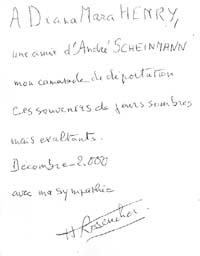 A Diana Mara HENRY,
une amie d'André SCHEINMANN
mon camarade de déportation
Ces souvenirs de jours sombres
mais exaltants.
Décembre 2.000
avec ma sympathie
H Rosencher